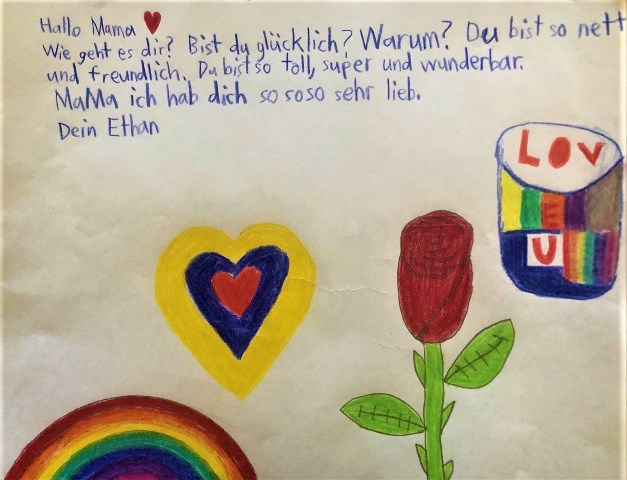 Hallo Mama
Wie geht es dir? Bist du glücklich? Warum? Du bist so nett
und freundlich. Du bist so toll, super und wunderbar.
MaMa ich hab dich so soso sehr lieb.
Dein Ethan
LOV
E
U